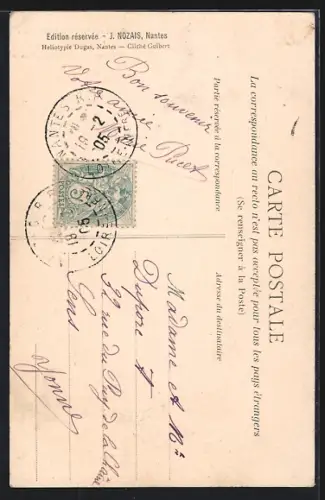 Edition réservée - J. NOZAIS, Nantes
Heliotypie Dugas, Nantes — Cliché Gelibert
CARTE POSTALE
La correspondance au recto n'est pas acceptée pour tous les pays étrangers
(Se renseigner à la Poste)
Partie réservée à la correspondance
Adresse du destinataire
Bon souvenir
Votre amie
Marie
Madame et Mr
Dupore
32 rue du Puy de la Chaîne
Sens
Yonne
NANTES
05
LOIRE